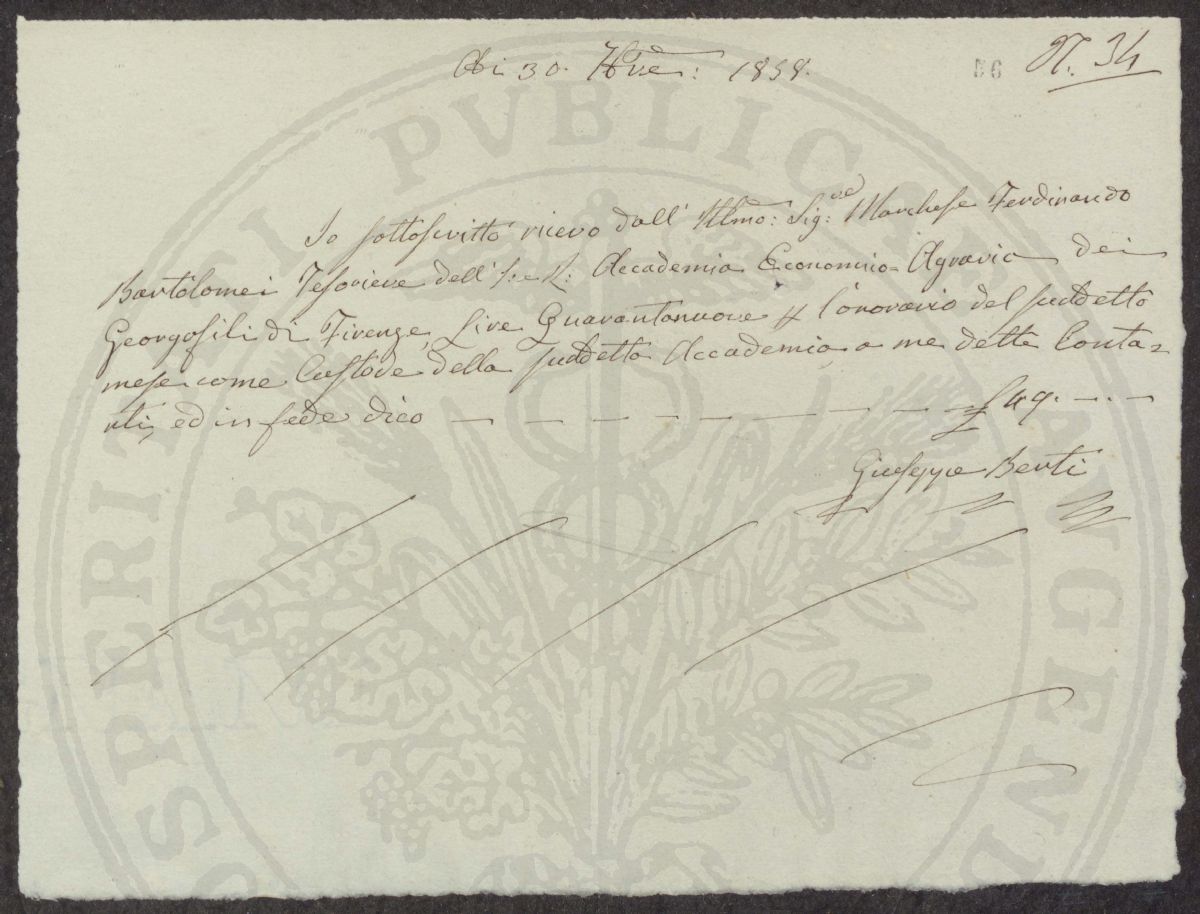 Adi 30. 9bre: 1858.
56 N. 34
Io sottoscritto ricevo dall' Illmo: Sig:re Marchese Ferdinando
Bartolomei Tesoriere dell' I: e R: Accademia Economico=Agraria dei
Georgofili di Firenze, Lire Quarantanuove p l'onorario del suddetto
mese come Custode della suddetta Accademia, a me dette Conta=
nti, ed in fede dico — — — — — — — £ 49. — . —
Giuseppe Berti
PROSPERITATI PUBLICAE AUGENDAE